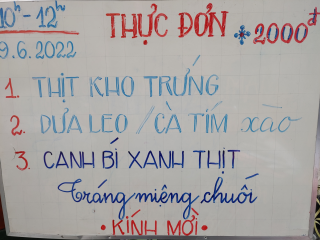 10ʰ - 12ʰ
9.6.2022
THỰC ĐƠN
*2000đ
1. THỊT KHO TRỨNG
2. DƯA LEO / CÀ TÍM xào
3. CANH BÍ XANH THỊT
Tráng miệng chuối
• KÍNH MỜI •